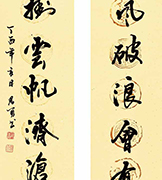 風破浪會有
掛雲帆濟滄
丁酉年